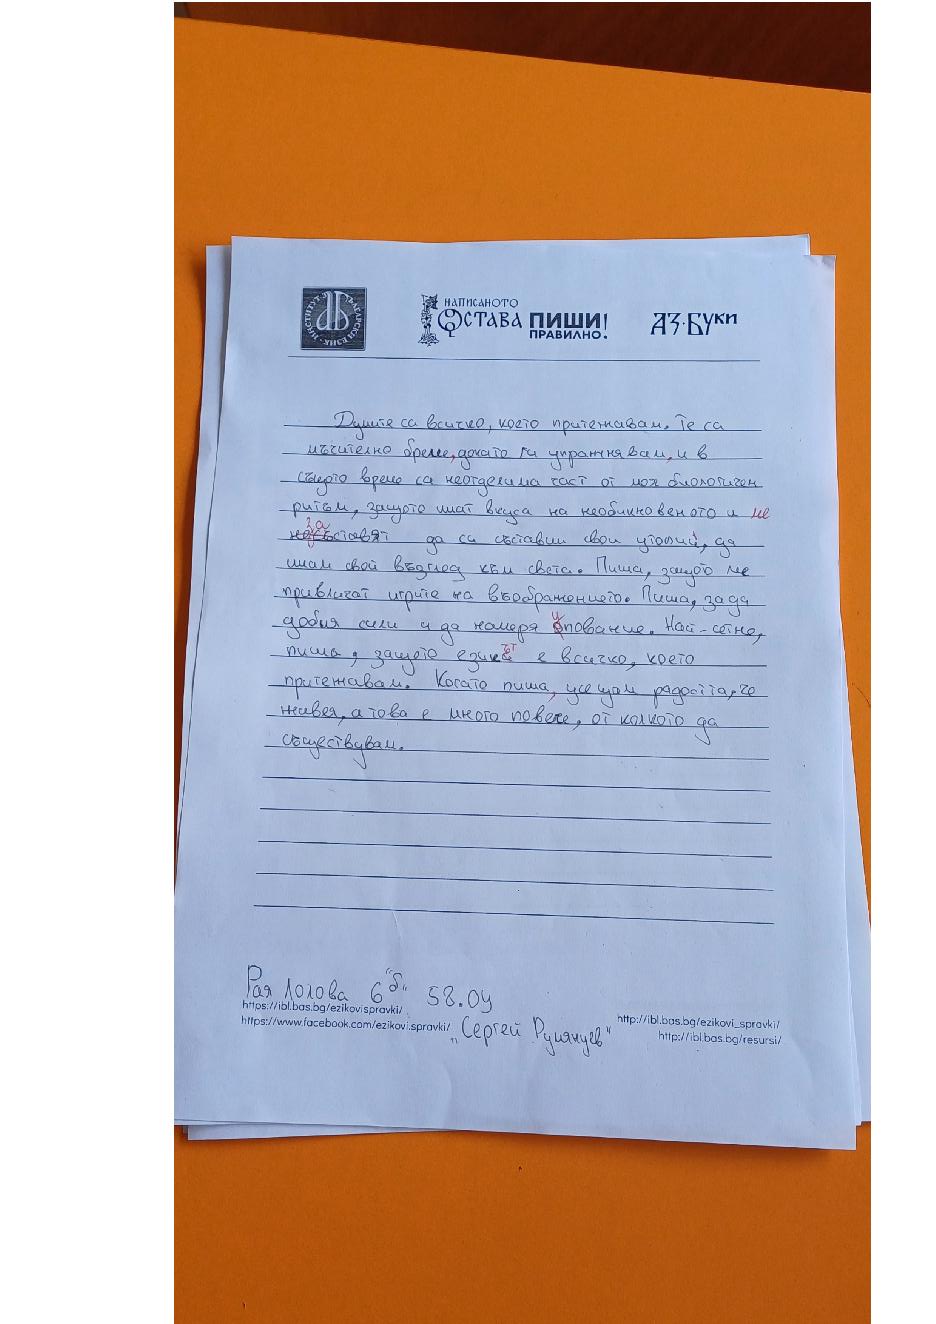 ИНСТИТУТ ЗА БЪЛГАРСКИ ЕЗИК
НАПИСАНОТО
ОСТАВА ПИШИ!
ПРАВИЛНО!
АЗ·БУКИ
Думите са всичко, което притежавам. Те са
мъчително бреме, докато ги упражнявам, и в
същото време са неотделима част от моя биологичен
ритъм, защото имат вкуса на необикновеното и ме
за
да си съставим свои утопии, да
имам свой възглед към света. Пиша, защото ме
привличат игрите на въображението. Пиша, за да
добия сили и да намеря упование. Най-сетне,
пиша, защото езикът е всичко, което
притежавам. Когато пиша, усещам радостта, че
живея, а това е много повече, от колкото да
съществувам.
Рая Лолова 6 "б" 58. ОУ
https://ibl.bas.bg/ezikovispravki/
http://ibl.bas.bg/ezikovi_spravki/
https://www.facebook.com/ezikovi.spravki/
„Сергей Румянцев"
http://ibl.bas.bg/resursi/